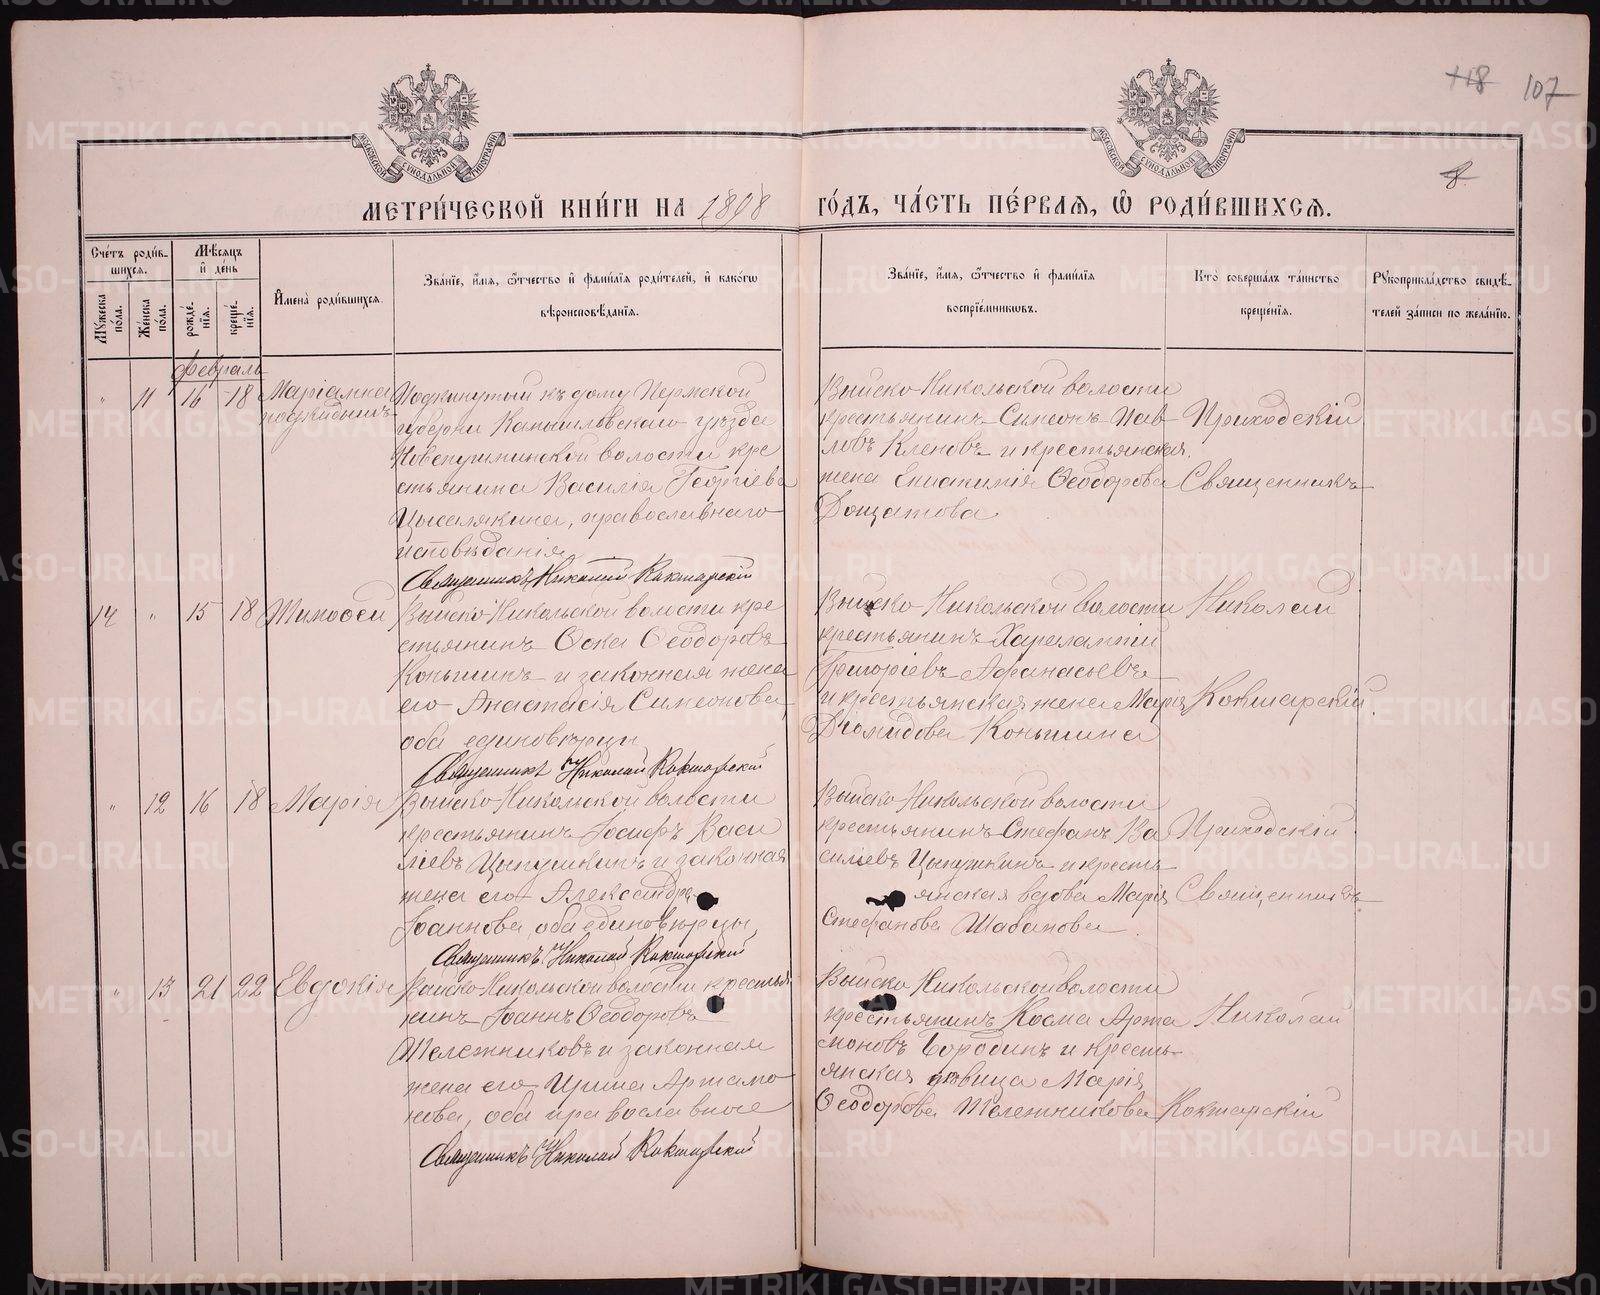 118 107
8
МОСКОВСКОЙ СѴНОДАЛЬНОЙ ТИПОГРАФІИ
МОСКОВСКОЙ СѴНОДАЛЬНОЙ ТИПОГРАФІИ
МЕТРИ́ЧЕСКОЙ КНИ́ГИ НА 1898 ГО́ДЪ, ЧА́СТЬ ПЕ́РВАѦ, Ѡ РОДИ́ВШИХСѦ.
Сче́тъ роди́в-
шихсѧ.
Мѣ́сѧцъ
и҆ де́нь
Мꙋ́жеска
по́ла.
Же́нска
по́ла.
рожде́-
нїѧ.
креще́-
нїѧ.
И҆мена̀ роди́вшихсѧ.
Зва́нїе, и҆́мѧ, ѻ҆́тчество и҆ фами́лїѧ роди́телей, и҆ како́гѡ
вѣроисповѣ́данїѧ.
Зва́нїе, и҆́мѧ, ѻ҆́тчество и҆ фами́лїѧ
воспрїе́мникѡвъ.
Кто̀ соверша́лъ та́инство
креще́нїѧ.
Рꙋкоприкла́дство свидѣ́-
телей за́писи по жела́нїю.
Февраль
" 11 16 18 Маріамна
подкидышъ
Подкинутый къ дому Пермской
губерніи Камышловскаго уѣзда
Новопышминской волости кре
стьянина Василія Георгіева
православнаго
исповѣданія
Священникъ Николай Кокшарскій
Выйско-Никольской волости
крестьянинъ Симеонъ Пав
ловъ Кленовъ и крестьянская
жена Ѳеодорова
Дощатова
Приходскій
Священникъ
14 " 15 18 Тимоѳей
Выйско-Никольской волости кре
стьянинъ Ѳока Ѳеодоровъ
Коньшинъ и законная жена
его Анастасія Симеонова,
оба единовѣрцы
Священникъ Николай Кокшарскій
Выйско-Никольской волости
крестьянинъ Харалампій
Григоріевъ Аѳанасьевъ
и крестьянская жена Марія
Діомидова Коньшина
Николай
Кокшарскій
" 12 16 18 Марія
Выйско-Никольской волости
крестьянинъ Іосифъ Васи
ліевъ Цыпушкинъ и законная
жена его Александра
Іоаннова, оба единовѣрцы,
Священникъ Николай Кокшарскій
Выйско-Никольской волости
крестьянинъ Стефанъ Ва
силіевъ Цыпушкинъ и кресть
янская вдова Марія
Стефанова Шабанова
Приходскій
Священникъ
" 13 21 22 Евдокія
Выйско-Никольской волости крестья
нинъ Іоаннъ Ѳеодоровъ
Тележниковъ и законная
жена его Ирина Артамо
нова, оба православные
Священникъ Николай Кокшарскій
Выйско Никольской волости
крестьянинъ Косма Арта
моновъ Бородинъ и кресть-
янская дѣвица Марія
Ѳеодорова Тележникова
Николай
Кокшарскій
METRIKI.GASO-URAL.RU